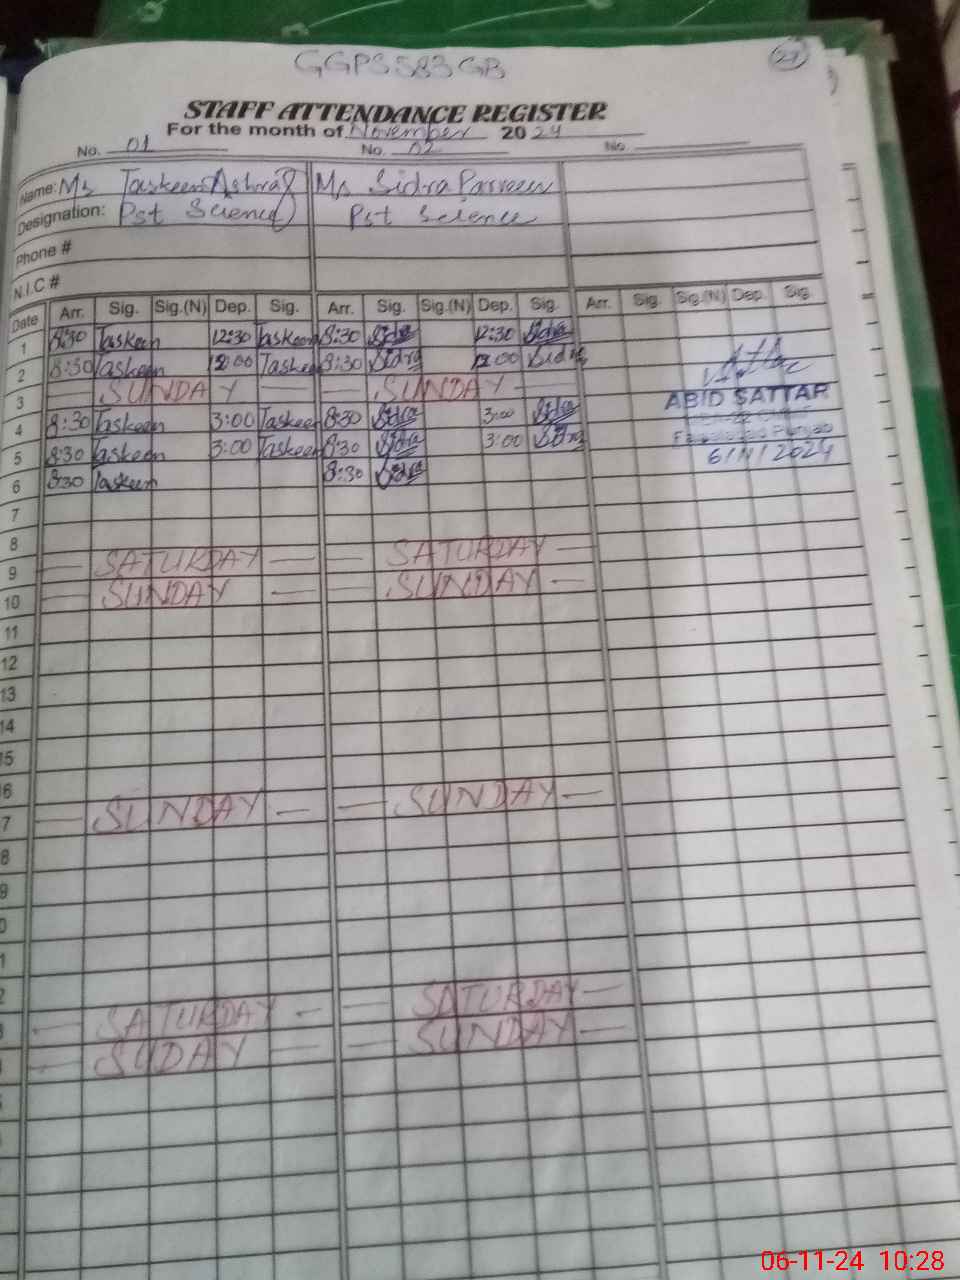 GGPS 583 GB
27
STAFF ATTENDANCE REGISTER
For the month of November 2024
No. 01 No. 02 No.
Name: Ms Taskeen Ashraf Ms Sidra Parveen
Designation: Pst Science Pst Science
Phone #
N.I.C #
Date Arr. Sig. Sig.(N) Dep. Sig. Arr. Sig. Sig.(N) Dep. Sig. Arr. Sig. Sig.(N) Dep. Sig.
1 8:30 Taskeen 12:30 Taskeen 8:30 Sidra 12:30 Sidra
2 8:30 Taskeen 12:00 Taskeen 8:30 Sidra 12:00 Sidra
3 SUNDAY SUNDAY
4 8:30 Taskeen 3:00 Taskeen 8:30 Sidra 3:00 Sidra
5 8:30 Taskeen 3:00 Taskeen 8:30 Sidra 3:00 Sidra
6 8:30 Taskeen 8:30 Sidra
ABID SATTAR
Faisalabad Punjab
6/11/2024
7
8
9 SATURDAY SATURDAY
10 SUNDAY SUNDAY
11
12
13
14
15
6
7 SUNDAY SUNDAY
8
9
0
1
2
3 SATURDAY SATURDAY
SUDAY SUNDAY
06-11-24 10:28